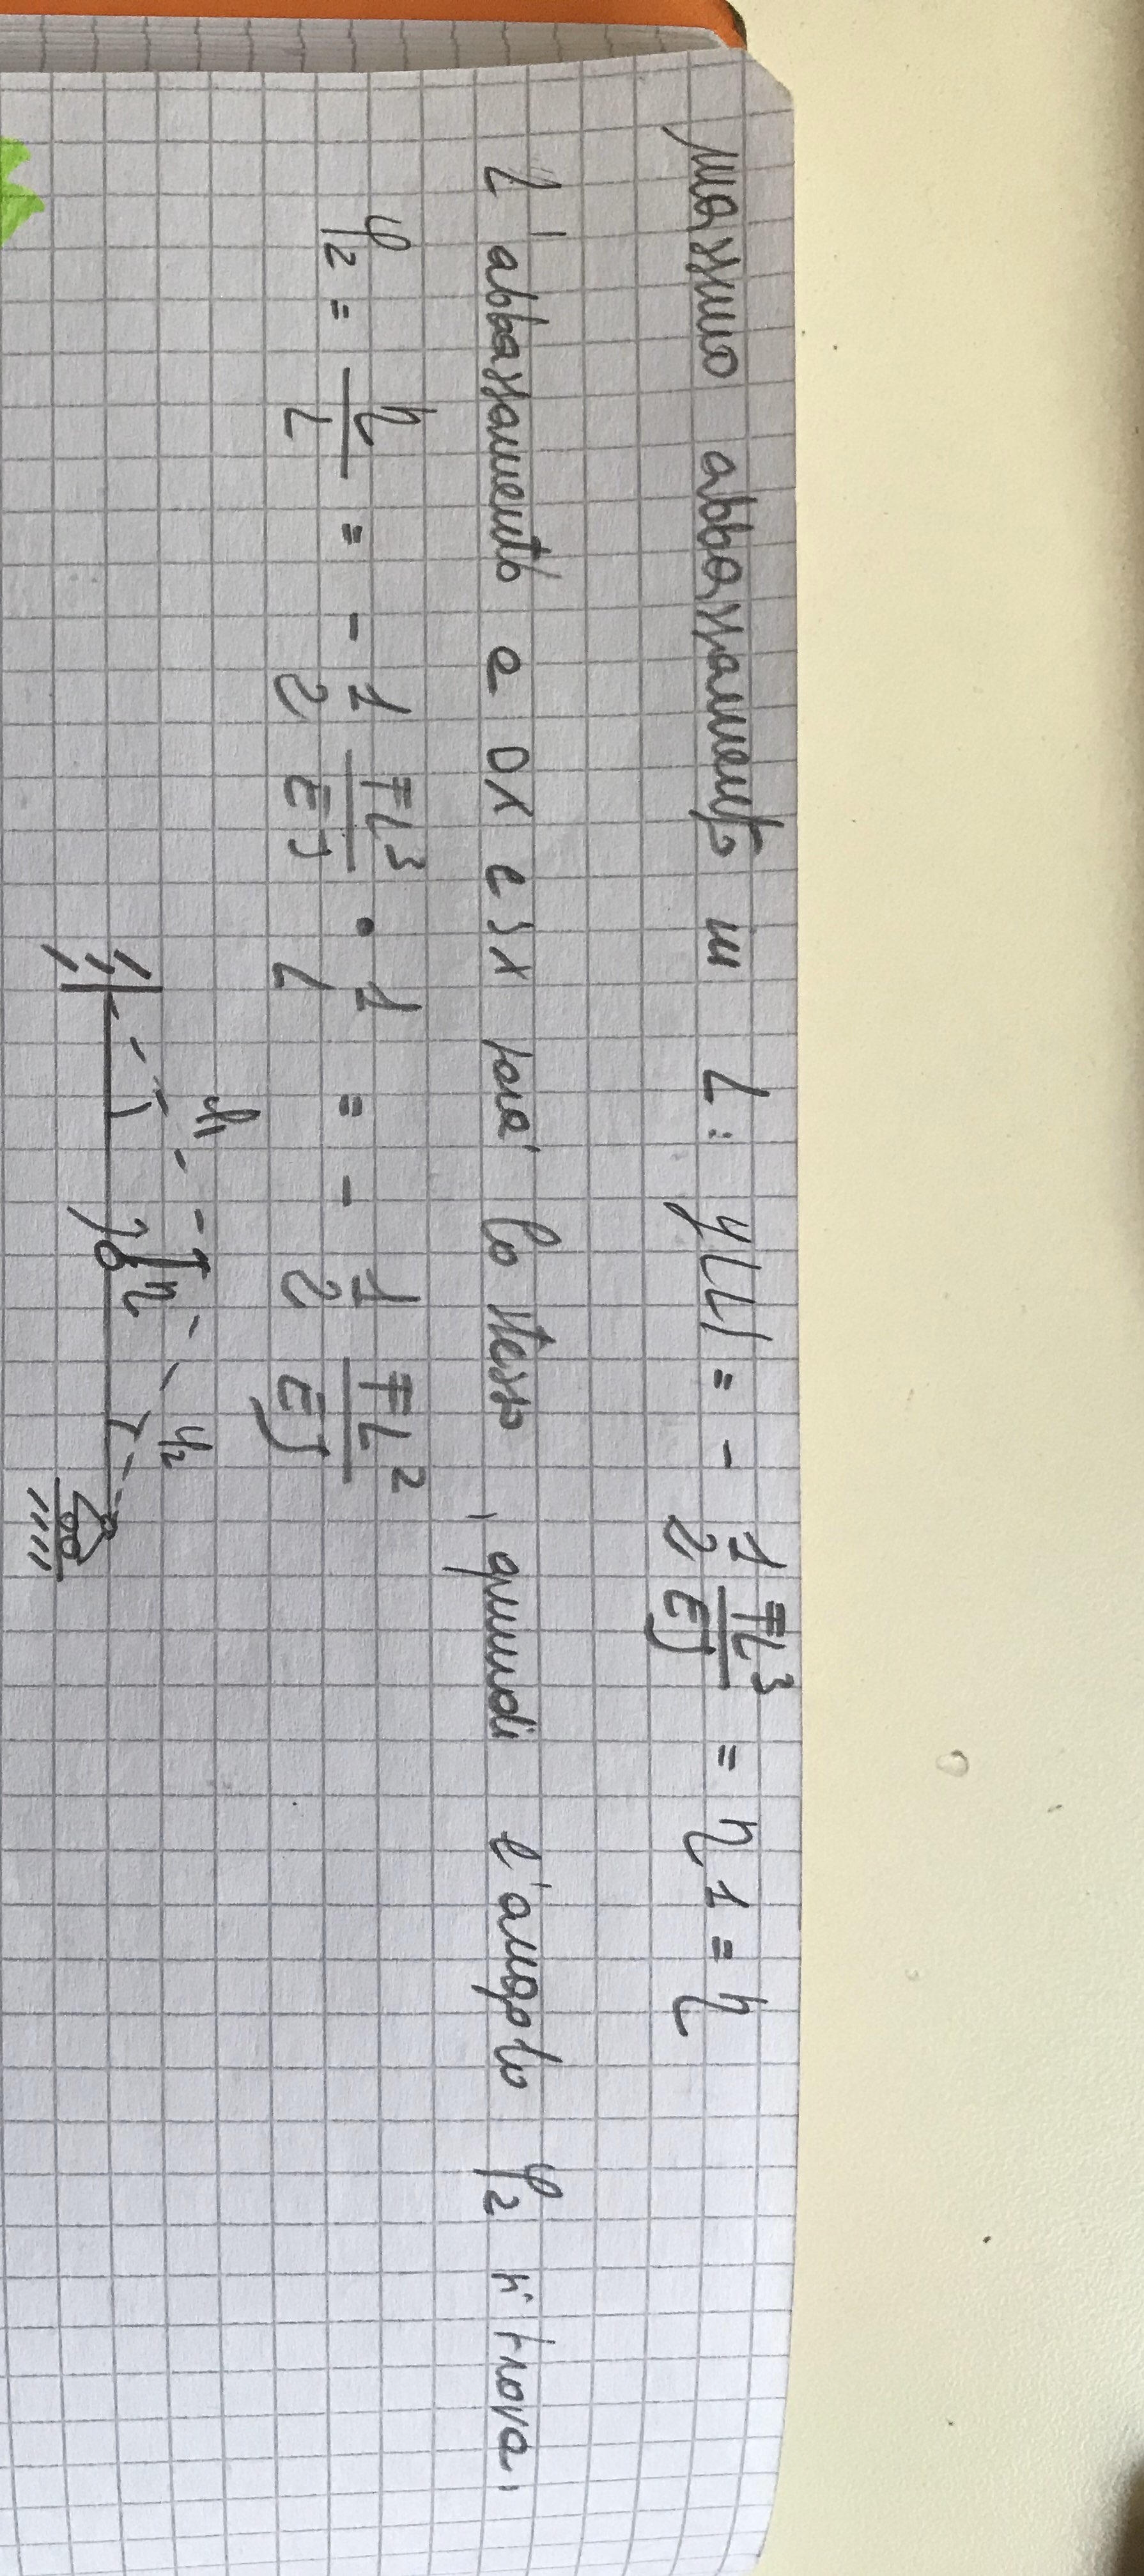 massimo abbassamento in L: y(L) = - 1/2 FL³/EJ = η1 = η
L'abbassamento a DX e SX sarà lo stesso, quindi l'angolo φ2 si trova,
φ2 = η/L = - 1/2 FL³/EJ · 1/L = - 1/2 FL²/EJ
φ1 η φ2